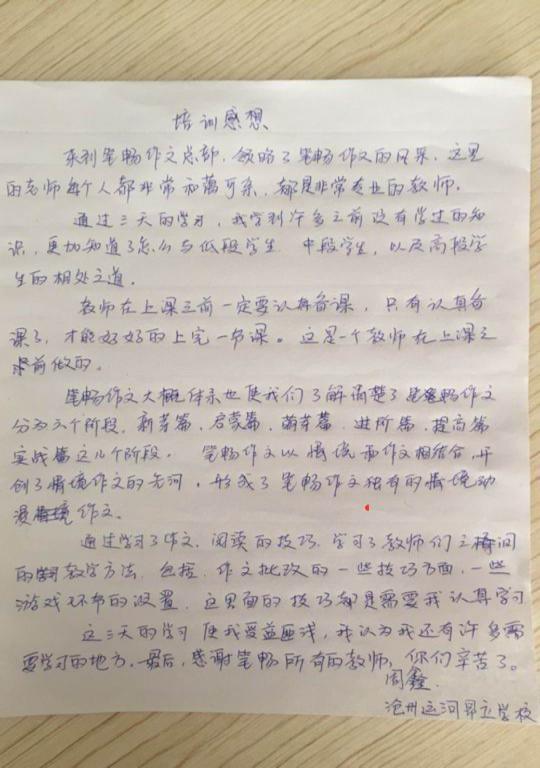 培训感想
来到笔畅作文总部，领略了笔畅作文的风采，这里
的老师每个人都非常和蔼可亲，都是非常专业的教师。
通过三天的学习，我学到许多之前没有学过的知
识，更加知道了怎么与低段学生 中段学生，以及高段学
生的相处之道。
教师在上课之前一定要认真备课，只有认真备
课了，才能好好的上完一节课。这是一个教师在上课之
前做的。
笔畅作文大概体系也使我们了解清楚了 笔畅作文
分为六个阶段，新芽篇，启蒙篇，萌芽篇，进阶篇，提高篇
实战篇这几个阶段。 笔畅作文以情境和作文相结合，开
创了情境作文的先河，形成了笔畅作文独有的情境动
漫作文。
通过学习了作文，阅读的技巧，学习了教师们之间
的教学方法，包括，作文批改的一些技巧方面，一些
游戏环节的设置，这里面的技巧都是需要我认真学习
这三天的学习使我受益匪浅，我认为我还有许多需
要学习的地方，最后，感谢笔畅所有的教师，你们辛苦了。
周鑫
沧州运河昂立学校